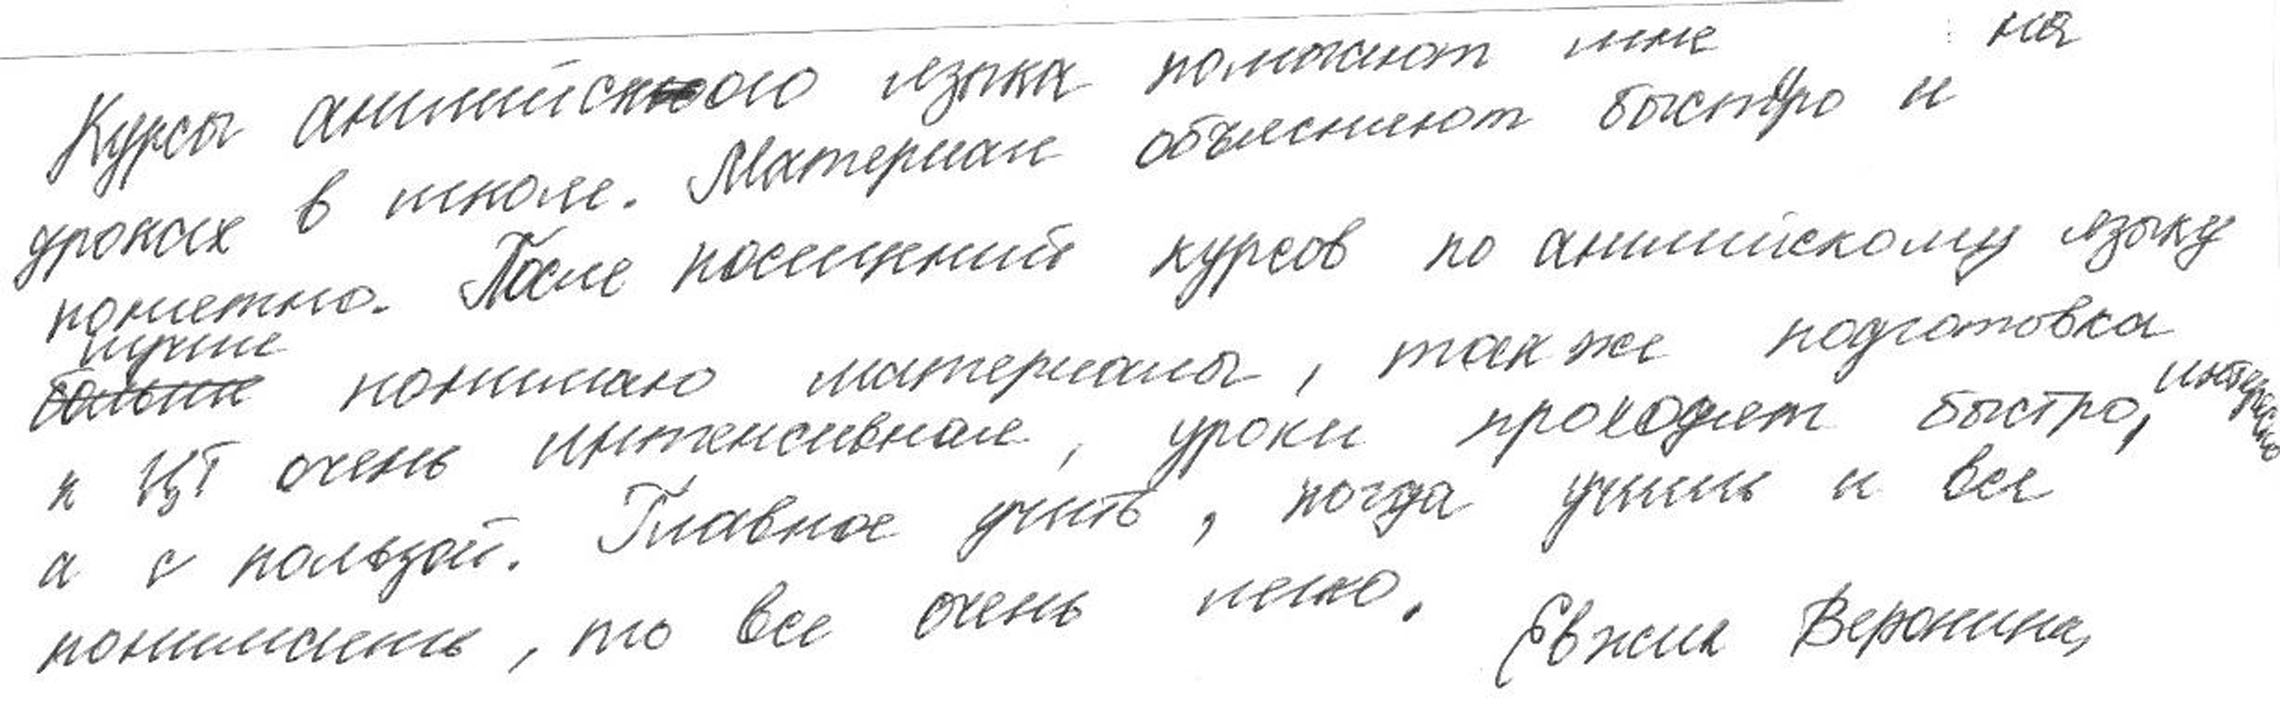 Курсы английского языка помогают мне на
уроках в школе. Материал объясняют быстро и
понятно. После посещений курсов по английскому языку
лучше
больше понимаю материалы, также подготовка
к ЦТ очень интенсивная, уроки проходят быстро, интересно
а с пользой. Главное учить, когда учишь и все
понимаешь, то все очень легко.
Евжик Вероника,